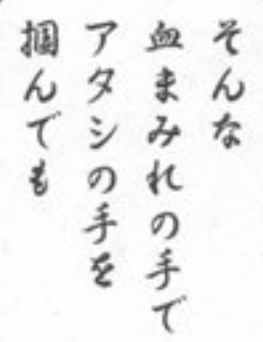 そんな
血まみれの手で
アタシの手を
掴んでも